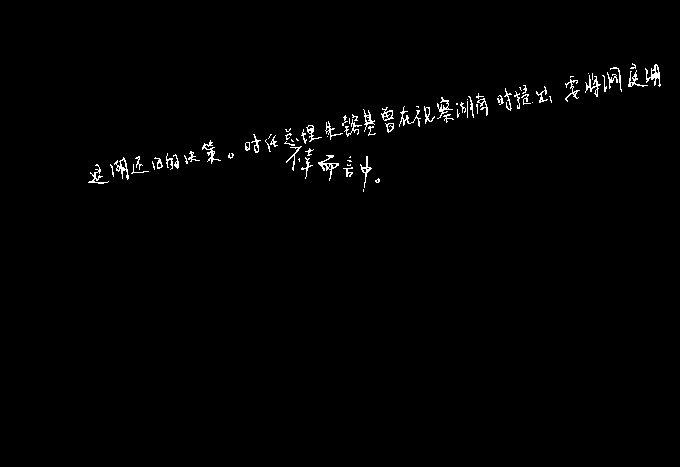 退湖还田的决策。时任总理朱镕基曾在视察湖南时提出,要将洞庭湖
不幸而言中。